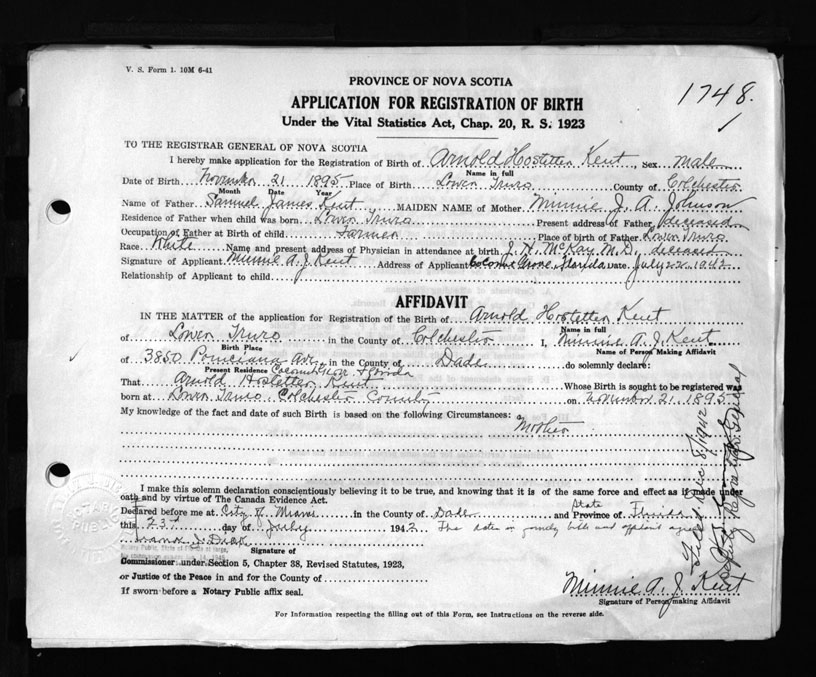 V. S. Form 1. 10M 6-41
1748.
PROVINCE OF NOVA SCOTIA
APPLICATION FOR REGISTRATION OF BIRTH
Under the Vital Statistics Act, Chap. 20, R. S. 1923
TO THE REGISTRAR GENERAL OF NOVA SCOTIA
I hereby make application for the Registration of Birth of Arnold Hostetter Kent, Sex male
Name in full
Date of Birth November 21 1895 Place of Birth Lower Truro County of Colchester
Month Date Year
Name of Father Samuel James Kent MAIDEN NAME of Mother Minnie J. A. Johnson
Residence of Father when child was born Lower Truro Present address of Father deceased
Occupation of Father at Birth of child Farmer Place of birth of Father Lower Truro
Race White Name and present address of Physician in attendance at birth J. H. McKay M.D. deceased
Signature of Applicant Minnie A. J. Kent Address of Applicant Coconut Grove, Florida Date July 22 1942
Relationship of Applicant to child
AFFIDAVIT
IN THE MATTER of the application for Registration of the Birth of Arnold Hostetter Kent
Name in full
of Lower Truro in the County of Colchester I, Minnie A. J. Kent
Birth Place Name of Person Making Affidavit
of 3850 Poinciana Av. in the County of Dade do solemnly declare:
Present Residence Coconut Grove Florida
That Arnold Hostetter Kent Whose Birth is sought to be registered was
born at Lower Truro Colchester County on November 21, 1895
My knowledge of the fact and date of such Birth is based on the following Circumstances:
Mother
I make this solemn declaration conscientiously believing it to be true, and knowing that it is of the same force and effect as if made under
oath and by virtue of The Canada Evidence Act.
Declared before me at City of Miami in the County of Dade and State Province of Florida
this 23rd day of July 1942 The dates in family bible and affidavit agree
Filed Dec 8/1942
Deputy Registrar General
Signature of
Commissioner under Section 5, Chapter 38, Revised Statutes, 1923,
or Justice of the Peace in and for the County of
If sworn before a Notary Public affix seal.
Minnie A. J. Kent
Signature of Person making Affidavit
For Information respecting the filling out of this Form, see Instructions on the reverse side.